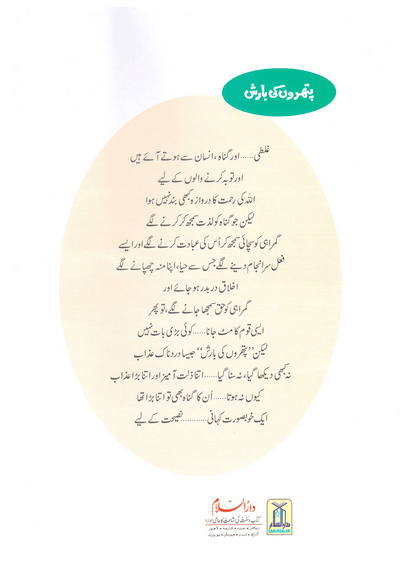 پتھروں کی بارش
غلطی......اور گناہ، انسان سے ہوتے آئے ہیں
اور توبہ کرنے والوں کے لیے
اللہ کی رحمت کا دروازہ کبھی بند نہیں ہوا
لیکن جو گناہ کو لذت سمجھ کر کرنے لگے
گمراہی کو سچائی سمجھ کر اُس کی عبادت کرنے لگے اور ایسے
فعل سرانجام دینے لگے جس سے حیا، اپنا منہ چھپانے لگے
اخلاق در بدر ہو جائے اور
گمراہی کو حق سمجھا جانے لگے، تو پھر
ایسی قوم کا مٹ جانا......کوئی بڑی بات نہیں
لیکن ”پتھروں کی بارش“ جیسا دردناک عذاب
نہ کبھی دیکھا گیا، نہ سنا گیا......اتنا ذلت آمیز اور اتنا بڑا عذاب
کیوں نہ ہوتا......اُن کا گناہ بھی تو اتنا بڑا تھا
ایک خوبصورت کہانی............نصیحت کے لیے
دارالسلام
کتاب و سنت کی اشاعت کا عالمی ادارہ
DARUSSALAM